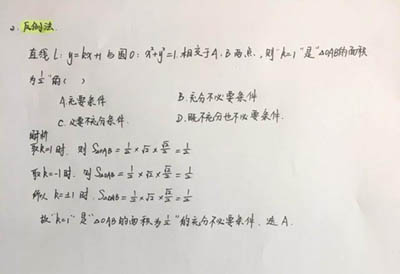 2. 反例法.
直线L: y=kx+1与圆O: x²+y²=1.相交于A,B两点.,则"k=1"是"△OAB的面积
为½"的( )
A.充要条件 B.充分不必要条件
C.必要不充分条件. D.既不充分也不必要条件.
解析
取k=1时. 则 S△OAB = ½ × √2 × √2/2 = ½
取k=-1时. 则 S△OAB = ½ × √2 × √2/2 = ½
所以 k=±1时. S△OAB = ½ × √2 × √2/2 = ½
故"k=1"是"△OAB的面积为½"的充分不必要条件. 选A.